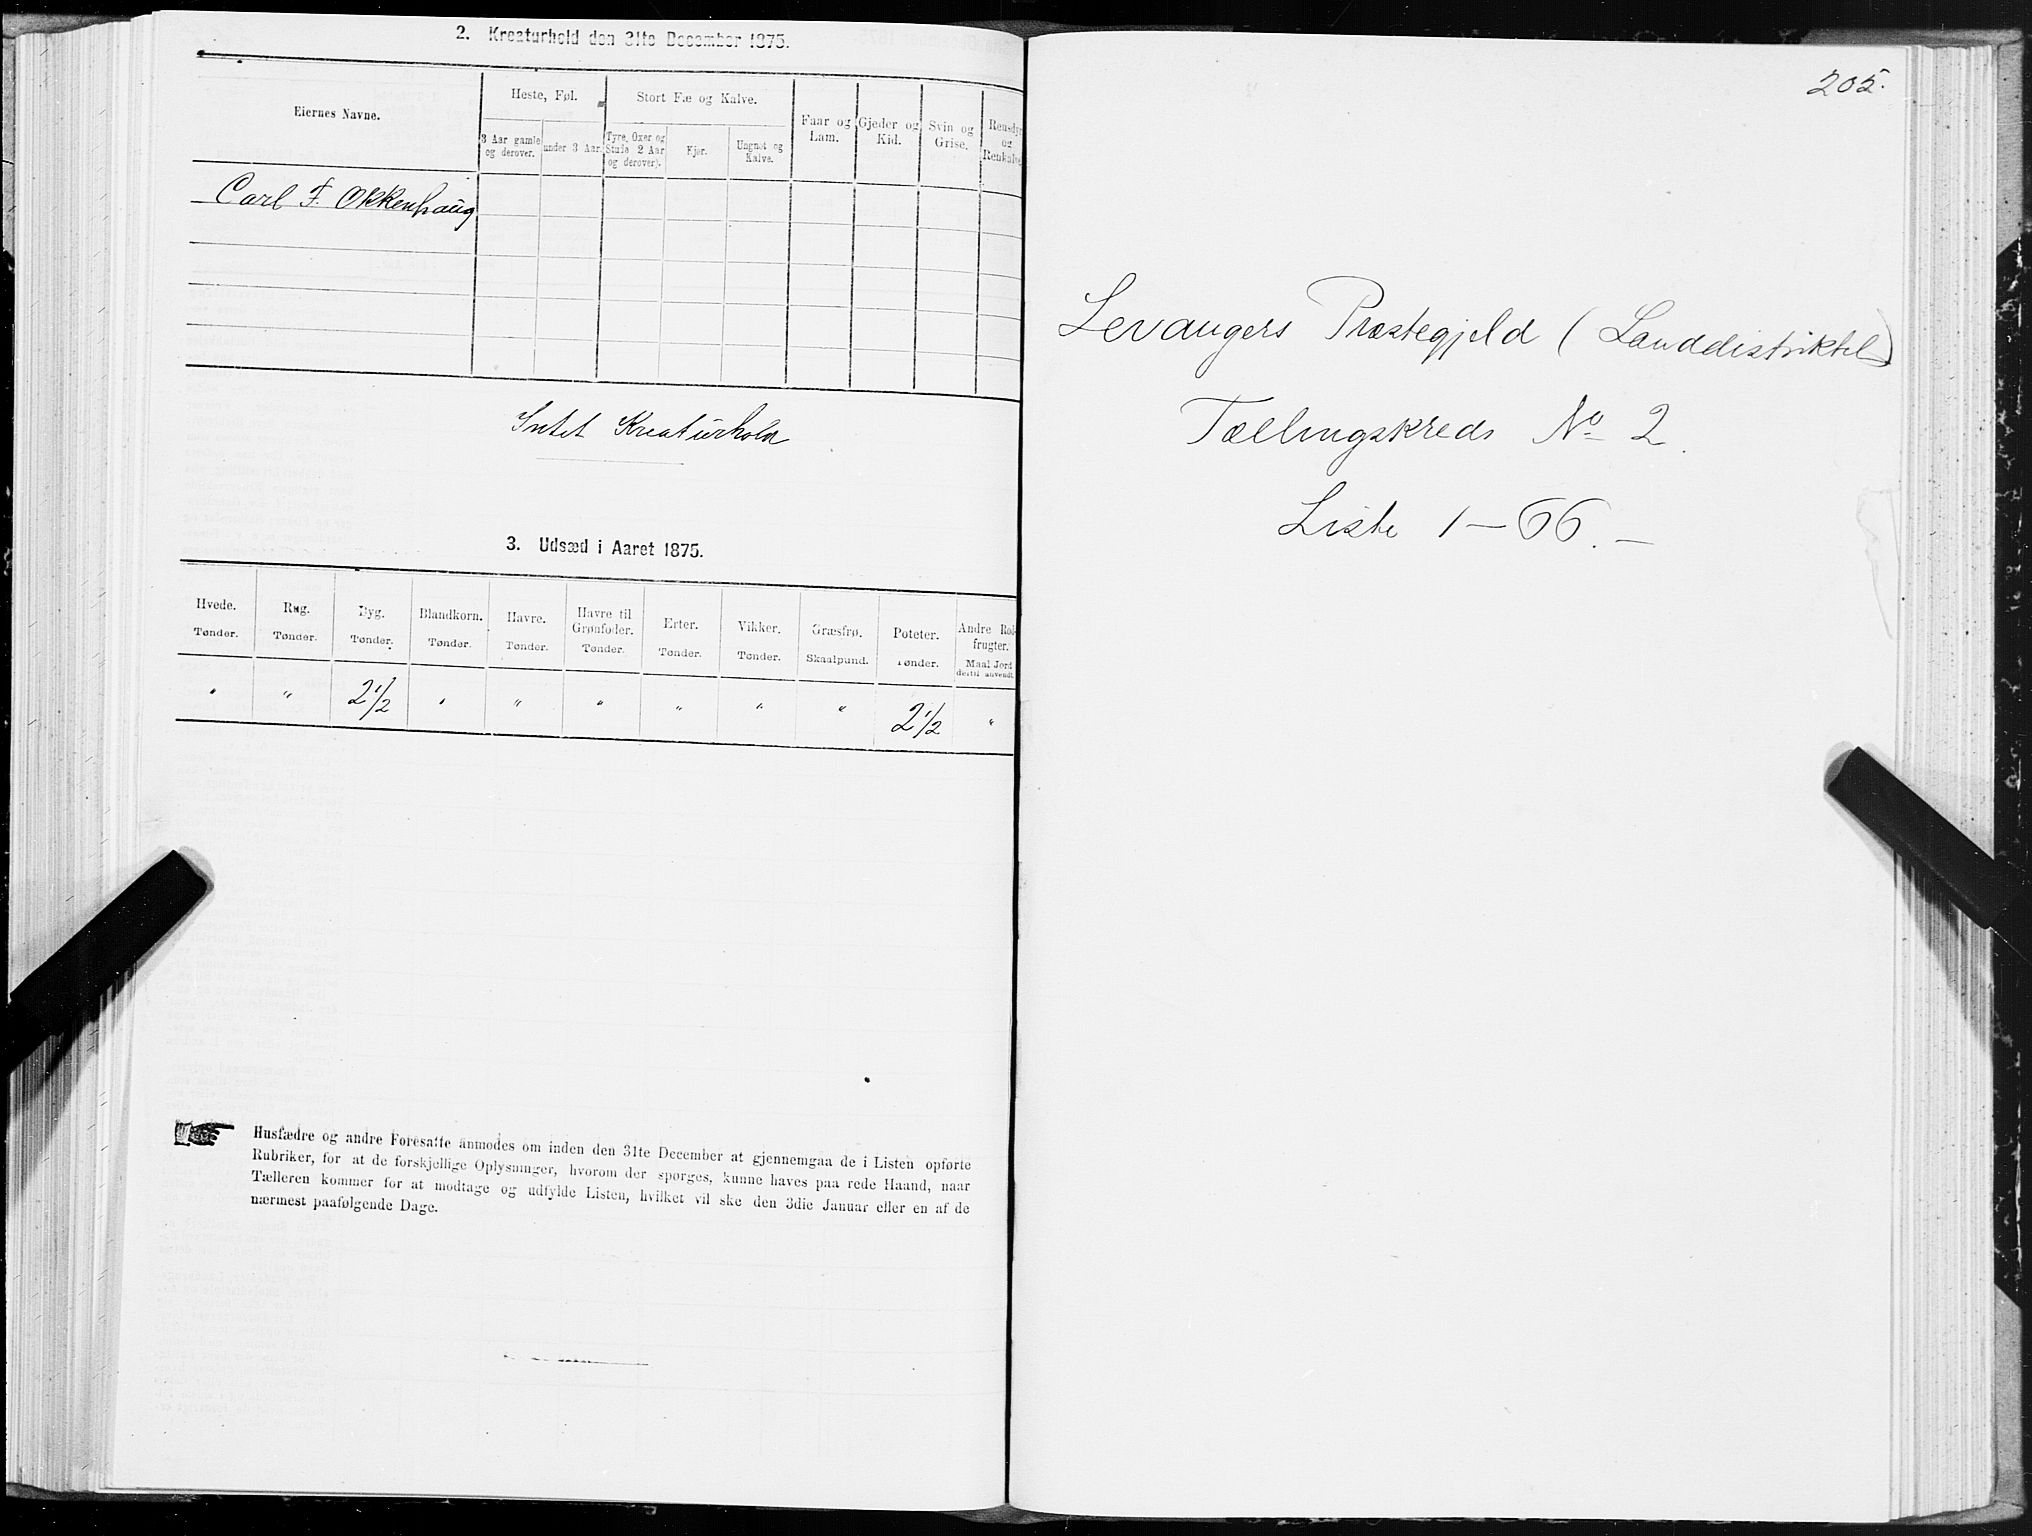 2. Kreaturhold den 31te December 1875.
Eiernes Navne.
Heste, Føl.
Stort Fæ og Kalve.
3 Aar gamle og derover.
under 3 Aar.
Tyre, Oxer og Stude 2 Aar og derover).
Kjør.
Ungnøt og Kalve.
Faar og Lam.
Gjeder og Kid.
Svin og Grise.
Rensdyr og Renkalve
Carl F. Okkenhaug
Intet Kreaturhold
3. Udsæd i Aaret 1875.
Hvede. Rug. Byg. Blandkorn. Havre. Havre til Grønfoder. Erter. Vikker. Græsfrø. Poteter. Andre Rodfrugter.
Tønder. Tønder. Tønder. Tønder. Tønder. Tønder. Tønder. Tønder. Skaalpund. Tønder. Maal Jord dertil anvendt.
" " 2 1/2 " " " " " " 2 1/2 "
Husfædre og andre Foresatte anmodes om inden den 31te December at gjennemgaa de i Listen opførte
Rubriker, for at de forskjellige Oplysninger, hvorom der spørges, kunne haves paa rede Haand, naar
Tælleren kommer for at modtage og udfylde Listen, hvilket vil ske den 3die Januar eller en af de
nærmest paafølgende Dage.
205.
Levangers Præstegjeld (Landdistriktet)
Tællingskreds No 2.
Liste 1–66.–